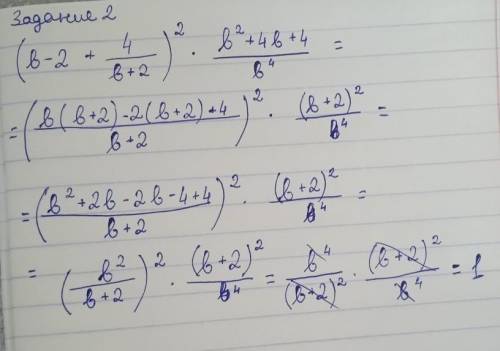 Задание 2
(b-2 + 4/(b+2))² · (b²+4b+4)/b⁴ =
= ((b(b+2)-2(b+2)+4)/(b+2))² · (b+2)²/b⁴ =
= ((b²+2b-2b-4+4)/(b+2))² · (b+2)²/b⁴ =
= (b²/(b+2))² · (b+2)²/b⁴ = b⁴/(b+2)² · (b+2)²/b⁴ = 1